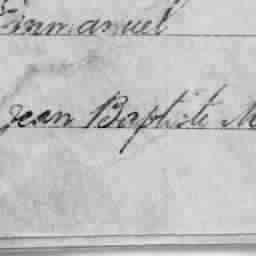 Emmanuel
Jean Baptiste M